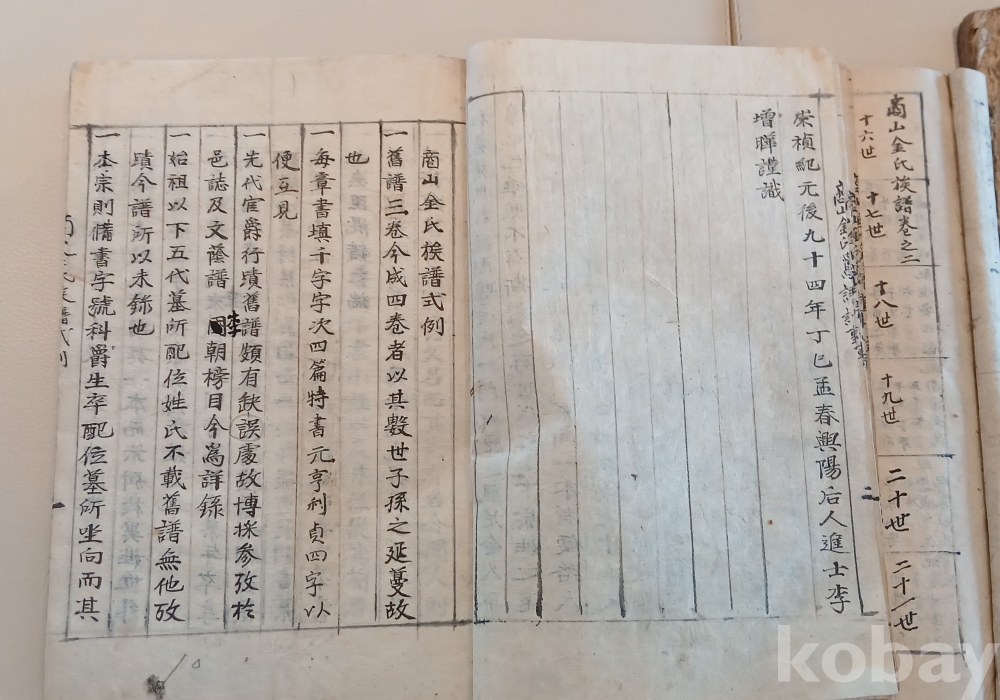 商山金氏族譜卷之二
十六世
十七世
十八世
十九世
二十世
二十一世
崇禎紀元後九十四年丁巳孟春興陽后人進士李
增曄謹識
商山金氏族譜式例
一舊譜三卷今成四卷者以其數世子孫之延蔓故
也
一每章書塡千字字次四篇特書元亨利貞四字以
便互見
一先代官爵行蹟舊譜頗有缺誤處故博採參攷於
邑誌及文蔭譜李國朝榜目今爲詳錄
一始祖以下五代墓所配位姓氏不載舊譜無他攷
蹟今譜所以未錄也
一本宗則備書字號科爵生卒配位墓所坐向而其
二
一
kobay